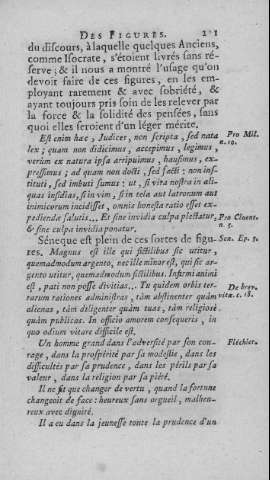 DES FIGURES. 211
du discours, à laquelle quelques Anciens,
comme Isocrate, s'étoient livrés sans ré-
serve; & il nous a montré l'usage qu'on
devoit faire de ces figures, en les em-
ployant rarement & avec sobriété, &
ayant toujours pris soin de les relever par
la force & la solidité des pensées, sans
quoi elles seroient d'un léger mérite.
Est enim hæc, Judices, non scripta, sed nata
lex; quam non didicimus, accepimus, legimus,
verùm ex natura ipsa arripuimus, hausimus, ex-
pressimus; ad quam non docti, sed facti; non ins-
tituti, sed imbuti sumus: ut, si vita nostra in ali-
quas insidias, si in vim, si in tela aut latronum aut
inimicorum incidisset, omnis honesta ratio esset ex-
pediendæ salutis... Et sine invidia culpa plectatur,
& sine culpa invidia ponatur.
Pro Mil.
n. 10.
Pro Cluent.
n. 5.
Sénèque est plein de ces sortes de figu-
res. Magnus est ille qui fictilibus sic utitur,
quemadmodum argento, nec ille minor est, qui sic ar-
gento utitur, quemadmodum fictilibus. Infirmi animi
est, pati non posse divitias... Tu quidem orbis ter-
rarum rationes administras, tàm abstinenter quàm
alienas, tàm diligenter quàm tuas, tàm religiosè
quàm publicas. In officio amorem consequeris, in
quo odium vitare difficile est.
Sen. Ep. 5.
De brev.
vitæ. c. 18.
Un homme grand dans l'adversité par son cou-
rage, dans la prospérité par sa modestie, dans les
difficultés par sa prudence, dans les périls par sa
valeur, dans la religion par sa piété.
Fléchier.
Il ne fit que changer de vertu, quand la fortune
changeoit de face: heureux sans orgueil, malheu-
reux avec dignité.
Il a eu dans la jeunesse toute la prudence d'un